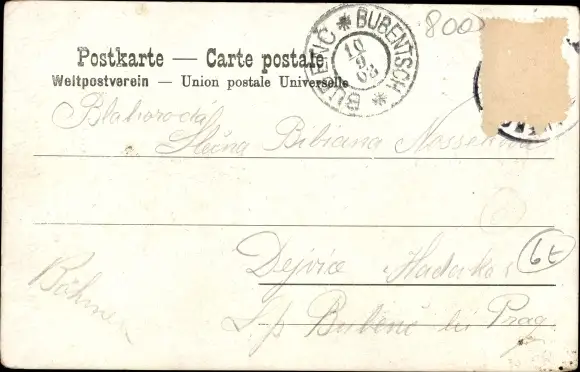 800
BUBENČ * BUBENTSCH *
10
9
03
Postkarte — Carte postale
Weltpostverein — Union postale Universelle
Blahorodá
Slečna Bibiana
Dejvice
6t
Böhmen
Bubenč bei Prag